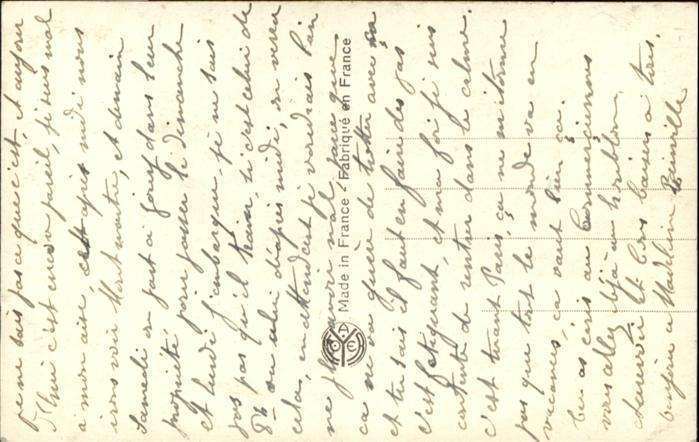 Je ne sais pas ce que c'est, et aujour
d'hui c'est encore pareil, je suis mal
à mon aise, cet après midi nous
irons voir Montmartre, et demain
Samedi on part à Jouy dans leur
propriété, pour passer le dimanche
et lundi j'embarque, je ne sais
pas par qu'il train, si c'est celui de
8h ou celui d'après midi, on verra
cela, en attendant je voudrais bien
ne plus avoir mal, parce que
ça ne va guère de trotter avec ça
et tu sais il faut en faire des pas
c'est fatiguant, et ma foi je suis
contente de rentrer dans le calme.
c'est tuant Paris, ça ne m'étonne
pas que tout le monde va en
vacances, ça vaut bien ça.
as écris au Commerciennes
vous allez déjà au houblon,
au revoir et bons baisers à tous.
bonjour à Madeleine
Made in France - Fabriqué en France